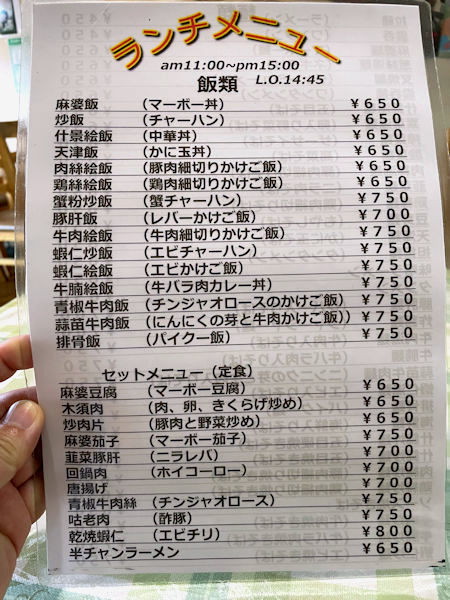 ランチメニュー
am11:00~pm15:00
飯類 L.O.14:45
麻婆飯 （マーボー丼） ￥650
炒飯 （チャーハン） ￥650
什景絵飯 （中華丼） ￥650
天津飯 （かに玉丼） ￥650
肉絲絵飯 （豚肉細切りかけご飯） ￥650
鶏絲絵飯 （鶏肉細切りかけご飯） ￥650
蟹粉炒飯 （蟹チャーハン） ￥750
豚肝飯 （レバーかけご飯） ￥700
牛肉絵飯 （牛肉細切りかけご飯） ￥750
蝦仁炒飯 （エビチャーハン） ￥750
蝦仁絵飯 （エビかけご飯） ￥750
牛腩絵飯 （牛バラ肉カレー丼） ￥750
青椒牛肉飯 （チンジャオロースのかけご飯） ￥750
蒜苗牛肉飯 （にんにくの芽と牛肉かけご飯）） ￥750
排骨飯 （パイクー飯） ￥750
セットメニュー（定食）
麻婆豆腐 （マーボー豆腐） ￥650
木須肉 （肉、卵、きくらげ炒め） ￥650
炒肉片 （豚肉と野菜炒め） ￥650
麻婆茄子 （マーボー茄子） ￥750
韮菜豚肝 （ニラレバ） ￥700
回鍋肉 （ホイコーロー） ￥700
唐揚げ ￥700
青椒牛肉絲 （チンジャオロース） ￥750
咕老肉 （酢豚） ￥750
乾焼蝦仁 （エビチリ） ￥800
半チャンラーメン ￥650